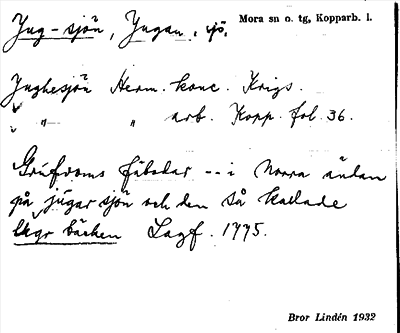 Jug-sjön, Jugan, sjö. Mora sn o. tg, Kopparb. l.
Jughesjön Herm. konc. Krigs.
" " arb. Kopp. fol. 36.
Grufroms fäbodar -- i Norra ändan
på jugar sjön och den så kallade
bäcken Lagf. 1775.
Bror Lindén 1932